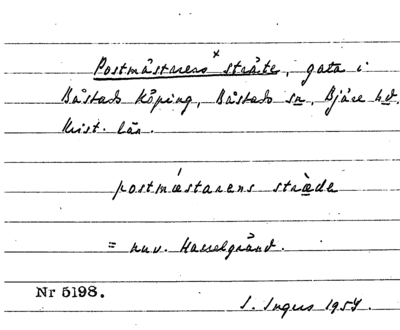 Postmästarens x stræte, gata i
Båstads köping, Båstads sn, Bjäre hd,
Krist. län.
postmæstarens stræde
= nuv. Hasselgränd.
Nr 5198.
S. Ingers 1957